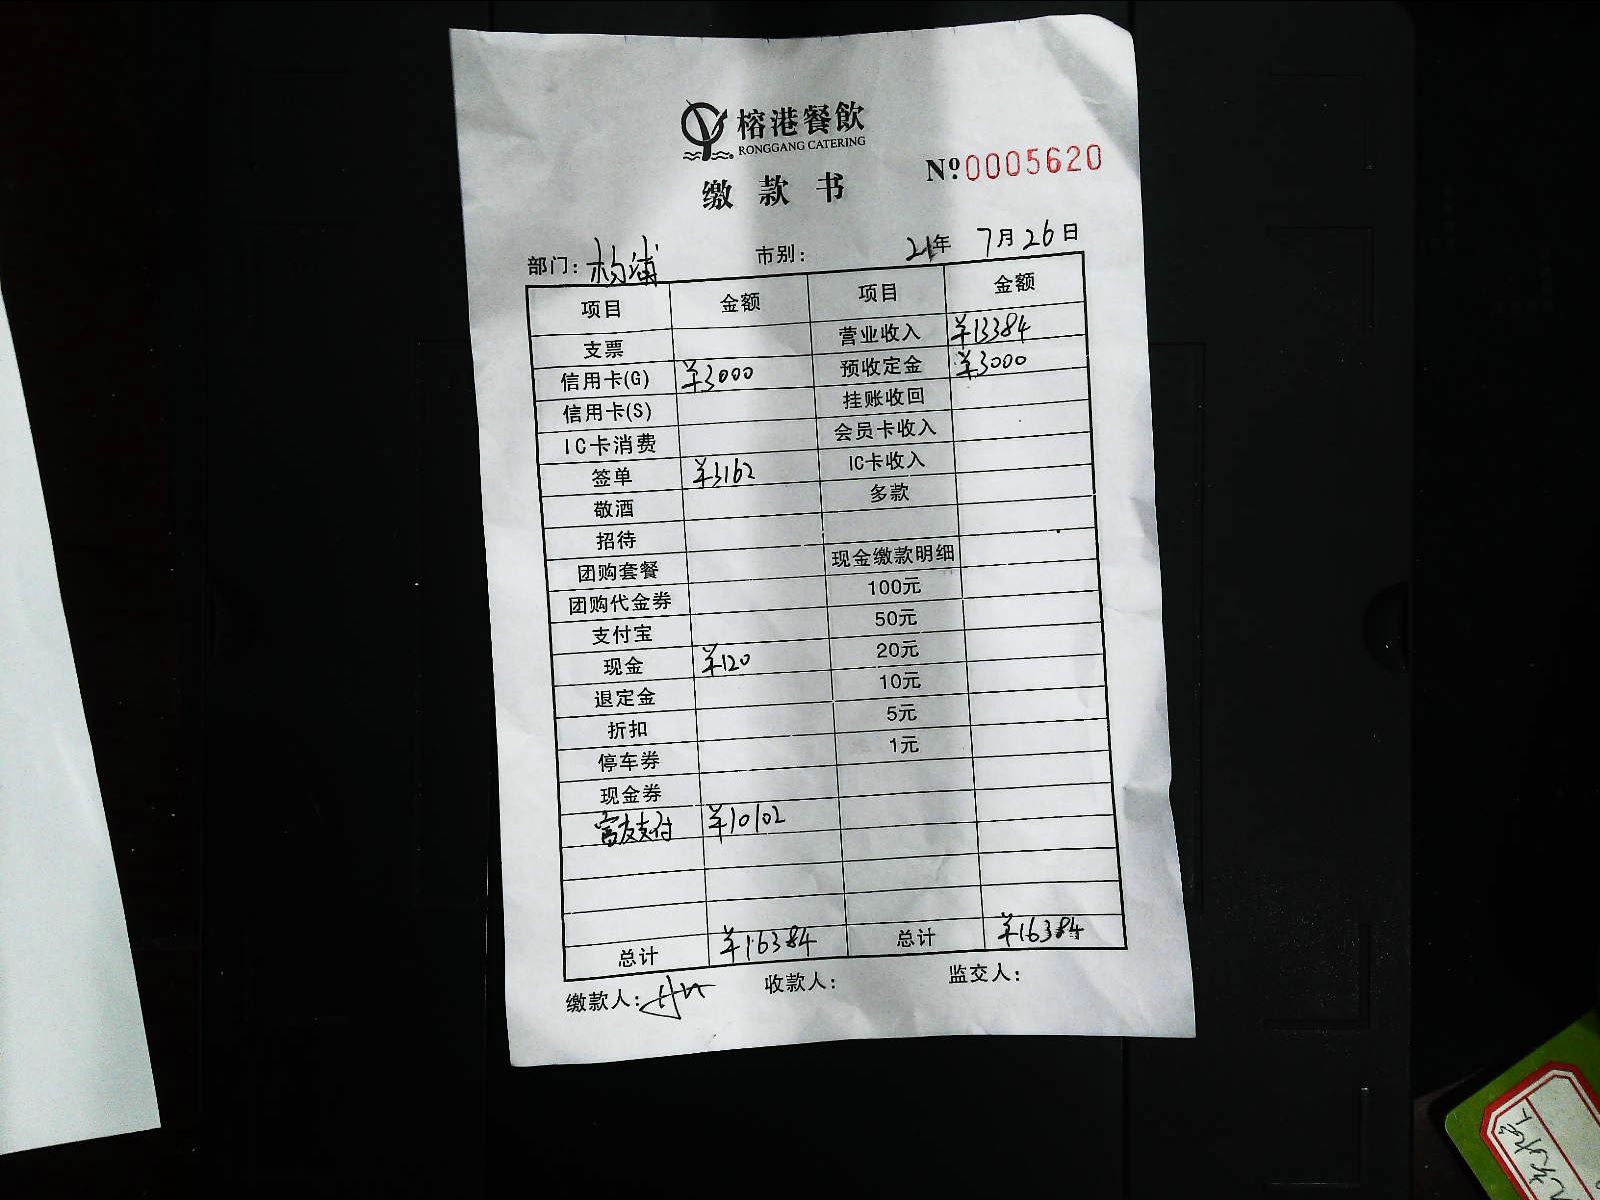 榕港餐飲
RONGGANG CATERING
缴款书
№0005620
部门：杨浦 市别： 21年 7月26日
项目 金额 项目 金额
支票 营业收入 ¥13384
信用卡(G) ¥3000 预收定金 ¥3000
信用卡(S) 挂账收回
IC卡消费 会员卡收入
签单 ¥3162 IC卡收入
敬酒 多款
招待
团购套餐 现金缴款明细
团购代金券 100元
支付宝 50元
现金 ¥120 20元
退定金 10元
折扣 5元
停车券 1元
现金券
富友支付 ¥10102
总计 ¥16384 总计 ¥16384
缴款人： 收款人： 监交人：